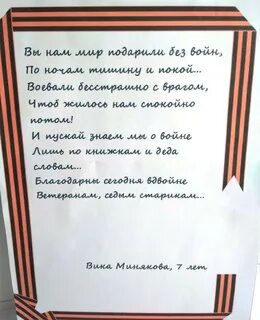 Вы нам мир подарили без войн,
По ночам тишину и покой...
Воевали бесстрашно с врагом,
Чтоб жилось нам спокойно
потом!
И пускай знаем мы о войне
Лишь по книжкам и деда
словам...
Благодарны сегодня вдвойне
Ветеранам, седым старикам...
Вика Минякова, 7 лет